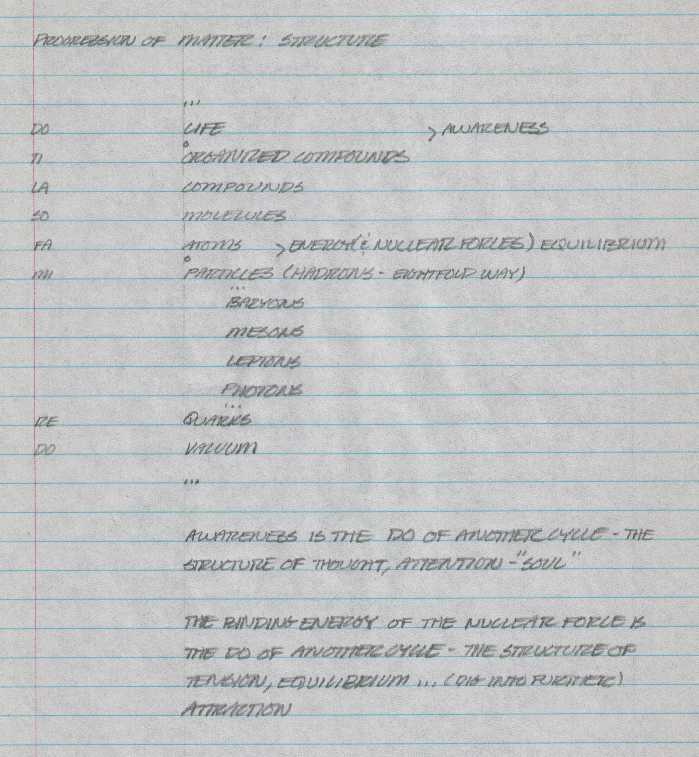 PROGRESSION OF MATTER: STRUCTURE
...
DO LIFE > AWARENESS
TI ORGANIZED COMPOUNDS
LA COMPOUNDS
SO MOLECULES
FA ATOMS > ENERGY (& NUCLEAR FORCES) EQUILIBRIUM
MI PARTICLES (HADRONS - EIGHTFOLD WAY)
...
BARYONS
MESONS
LEPTONS
PHOTONS
...
RE QUARKS
DO VACUUM
...
AWARENESS IS THE DO OF ANOTHER CYCLE - THE
STRUCTURE OF THOUGHT, ATTENTION - "SOUL"
THE BINDING ENERGY OF THE NUCLEAR FORCE IS
THE DO OF ANOTHER CYCLE - THE STRUCTURE OF
TENSION, EQUILIBRIUM ... (DIG INTO FURTHER)
ATTRACTION